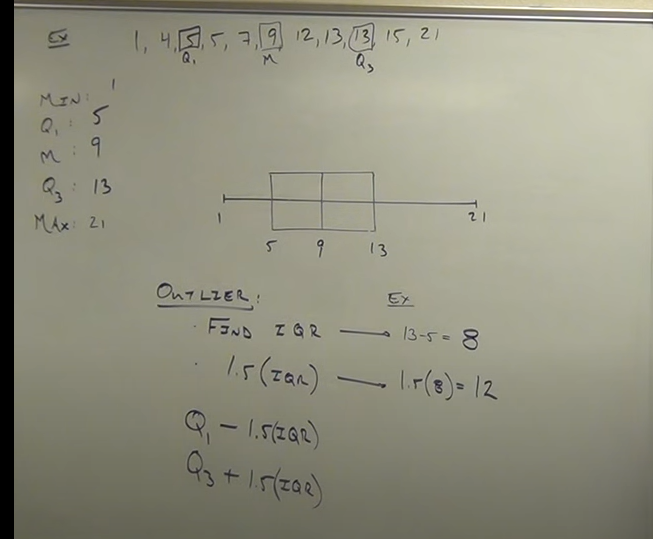 Ex 1, 4, 5, 5, 7, 9, 12, 13, 13, 15, 21
Q1 M Q3
MIN: 1
Q1: 5
M: 9
Q3: 13
MAX: 21
1 21
5 9 13
OUTLIER: Ex
· FIND IQR → 13-5 = 8
· 1.5(IQR) → 1.5(8) = 12
Q1 - 1.5(IQR)
Q3 + 1.5(IQR)